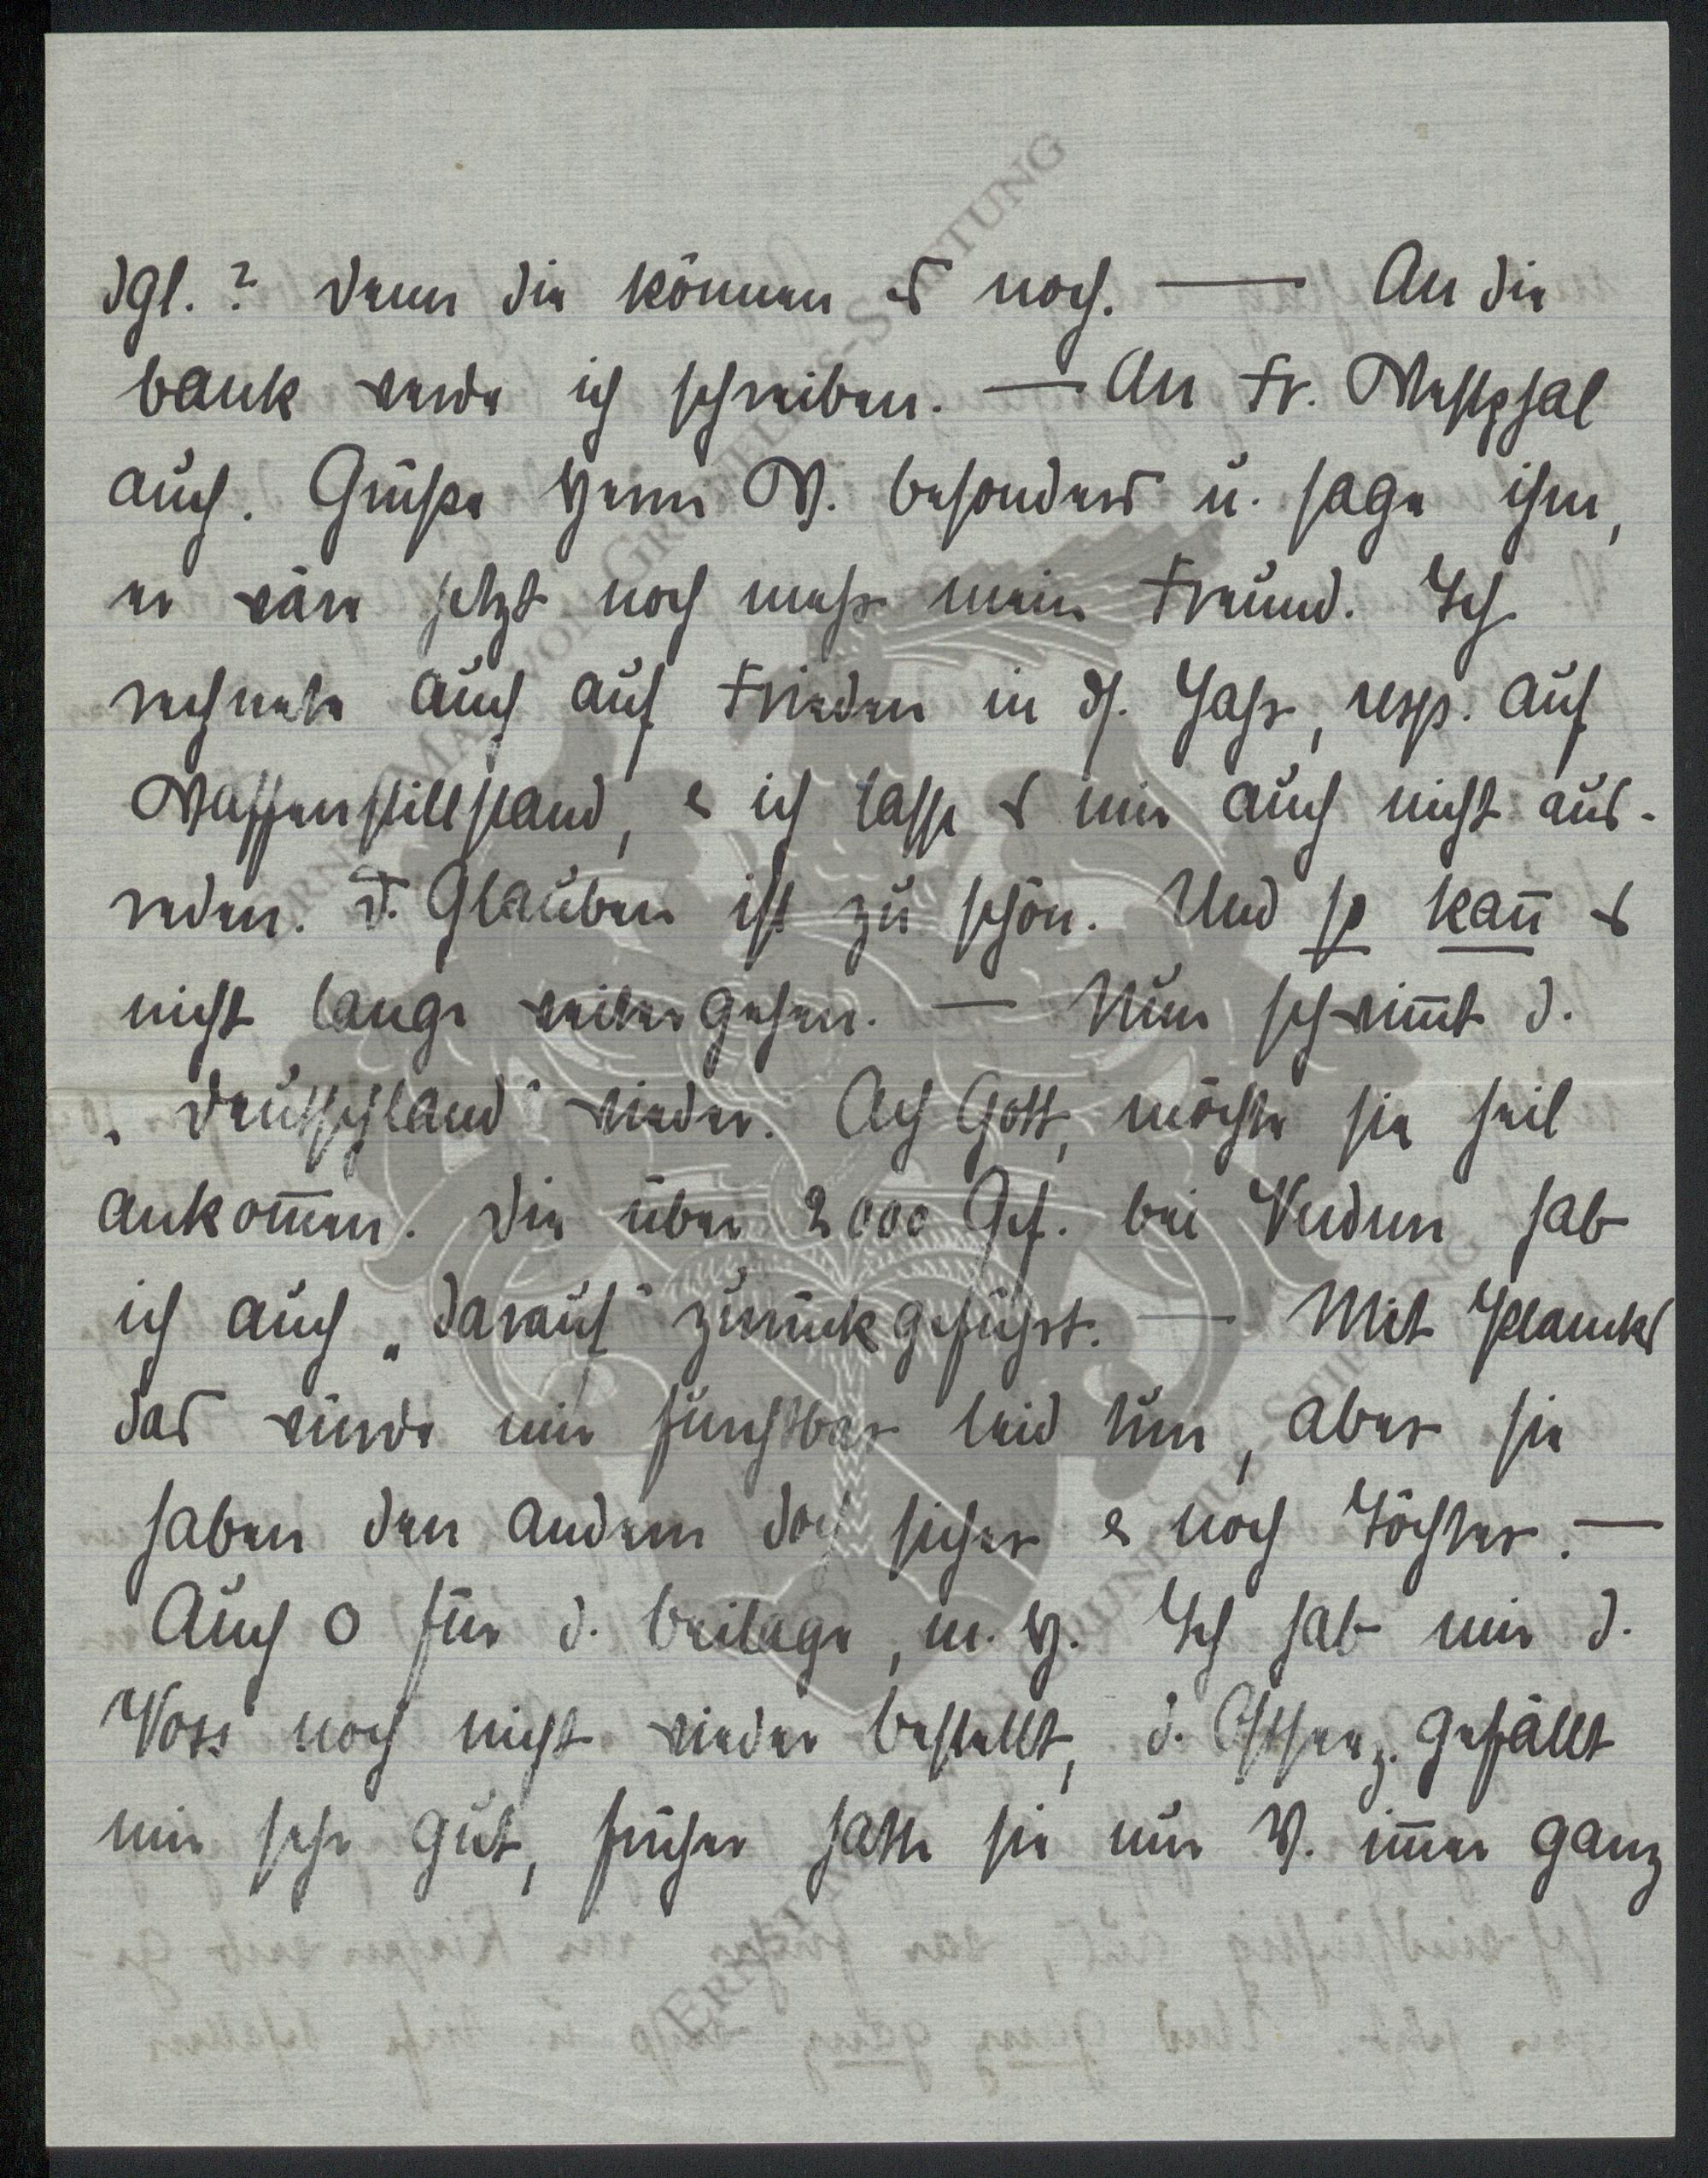 dgl.? Denn die können es noch. — An die
Bank werde ich schreiben. — An Fr. Westphal
auch. Grüße Herrn W. besonders u. sage ihm,
er wäre jetzt noch mehr mein Freund. Ich
rechnete auch auf Frieden in ds. Jahr, resp. auf
Waffenstillstand, & ich lasse es mir auch nicht aus-
reden. D. Glauben ist zu schön. Und so kan̅ es
nicht lange weitergehen. — Nun schwim̅t d.
„Deutschland“ wieder. Ach Gott, möchte sie heil
ankom̅en. Die über 2000 Gef. bei Verdun hab
ich auch „darauf“ zurückgeführt. — Mit Plancks
das würde mir furchtbar leid tun, aber sie
haben den andern doch sicher & noch Töchter. —
Auch O für d. Beilage, m. H. Ich hab mir d.
Voss noch nicht wieder bestellt, d. Ostseez. gefällt
mir sehr gut, früher hatte sie nur V. im̅er ganz
ERNST-MARTIN VON GRUNELIUS-STIFTUNG